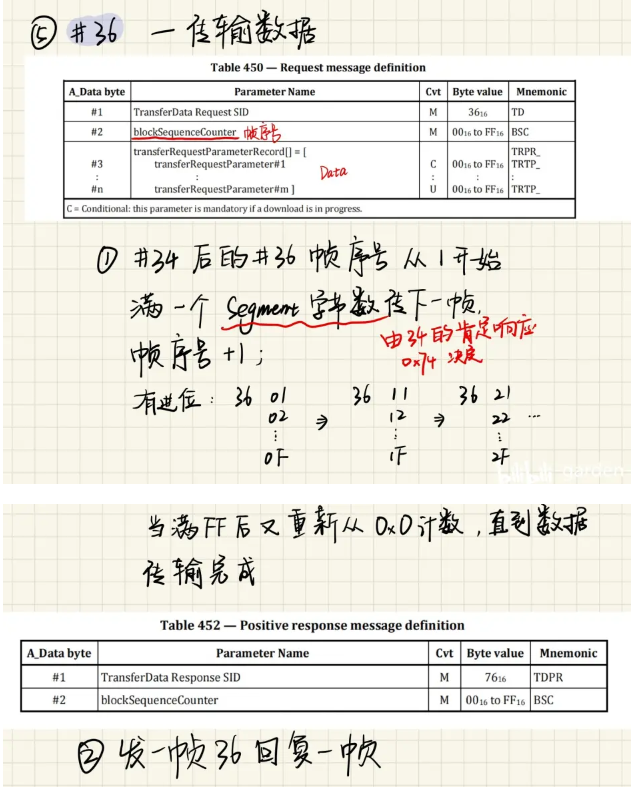 ⑤ #36 — 传输数据
Table 450 — Request message definition
A_Data byte Parameter Name Cvt Byte value Mnemonic
#1 TransferData Request SID M 36₁₆ TD
#2 blockSequenceCounter 帧序号 M 00₁₆ to FF₁₆ BSC
transferRequestParameterRecord[] = [ TRPR_
#3 transferRequestParameter#1 C 00₁₆ to FF₁₆ TRTP_
: : Data : : :
#n transferRequestParameter#m ] U 00₁₆ to FF₁₆ TRTP_
C = Conditional: this parameter is mandatory if a download is in progress.
① #34 后的#36 帧序号 从1开始
满一个 Segment 字节数 传下一帧,
由34的肯定响应
帧序号 +1;
0x74 决定
有进位: 36 01 36 11 36 21
02 ⇒ 12 ⇒ 22 ...
⋮ ⋮ ⋮
0F 1F 2F
bilibili garden
当满FF后又重新从0x0计数,直到数据
传输完成
Table 452 — Positive response message definition
A_Data byte Parameter Name Cvt Byte value Mnemonic
#1 TransferData Response SID M 76₁₆ TDPR
#2 blockSequenceCounter M 00₁₆ to FF₁₆ BSC
② 发一帧36回复一帧